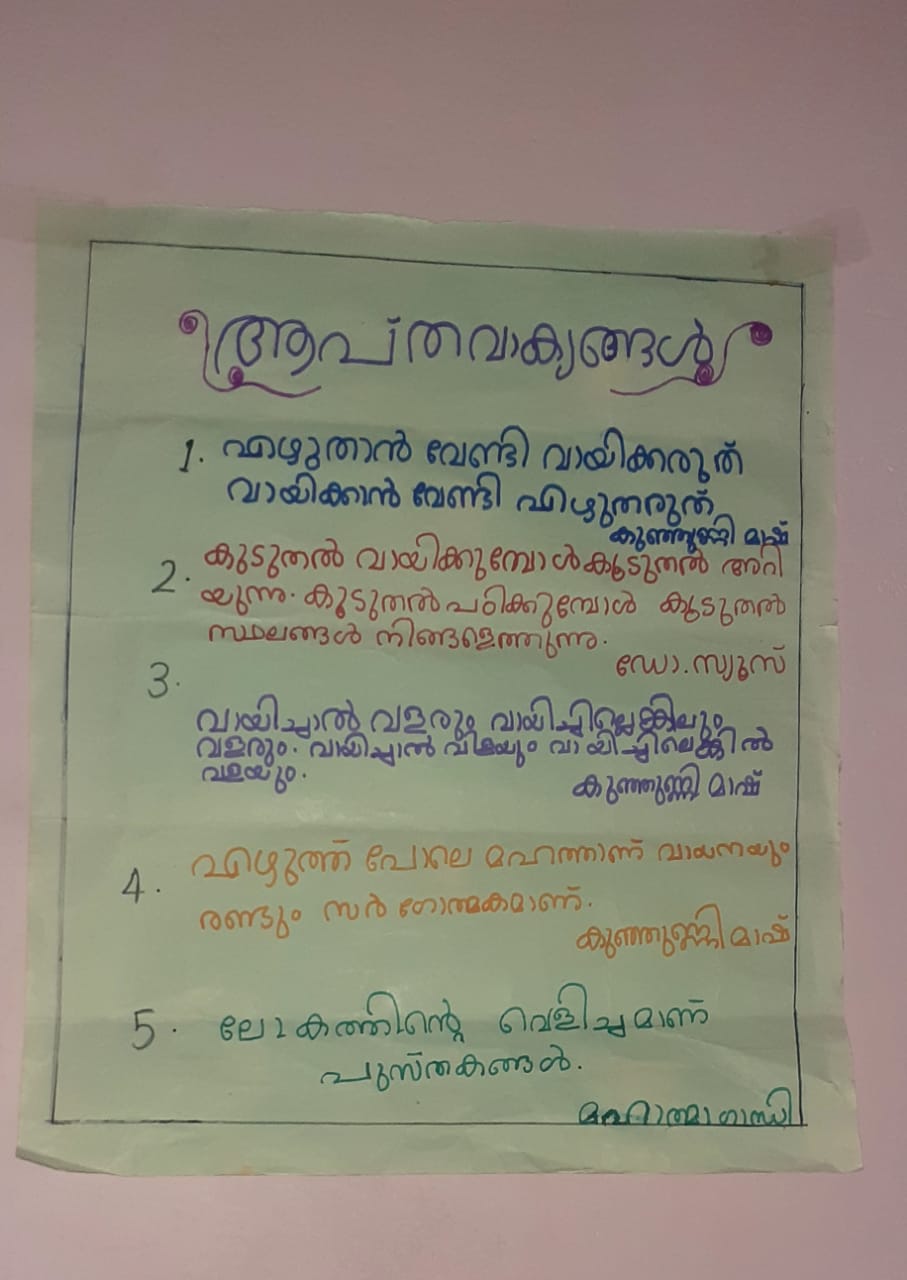 ആപ്തവാക്യങ്ങൾ
1. എഴുതാൻ വേണ്ടി വായിക്കരുത്
വായിക്കാൻ വേണ്ടി എഴുതരുത്
കുഞ്ഞുണ്ണി മാഷ്
2. കുടുതൽ വായിക്കുമ്പോൾ കൂടുതൽ അറി
യുന്നു. കൂടുതൽ പഠിക്കുമ്പോൾ കൂടുതൽ
സ്ഥലങ്ങൾ നിങ്ങളെത്തുന്നു.
ഡോ. സ്യൂസ്
3.
വായിച്ചാൽ വളരും വായിച്ചില്ലെങ്കിലും
വളരും. വായിച്ചാൽ വിളയും വായിച്ചിലെങ്കിൽ
വളയും.
കുഞ്ഞുണ്ണി മാഷ്
4. എഴുത്ത് പോലെ മഹത്താണ് വായനയും
രണ്ടും സർഗാത്മകമാണ്.
കുഞ്ഞുണ്ണി മാഷ്
5. ലോകത്തിന്റെ വെളിച്ചമാണ്
പുസ്തകങ്ങൾ.
മഹാത്മാഗാന്ധി